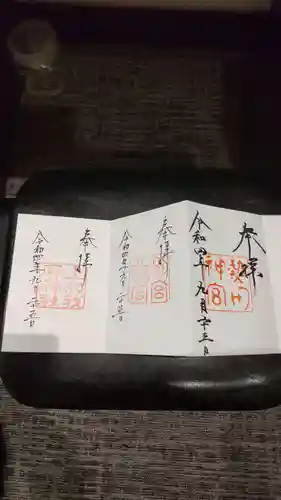 奉拝
熱田
神宮
令和四年九月二十三日
奉拝
令和四年九月二十三日
奉拝
令和四年九月二十三日